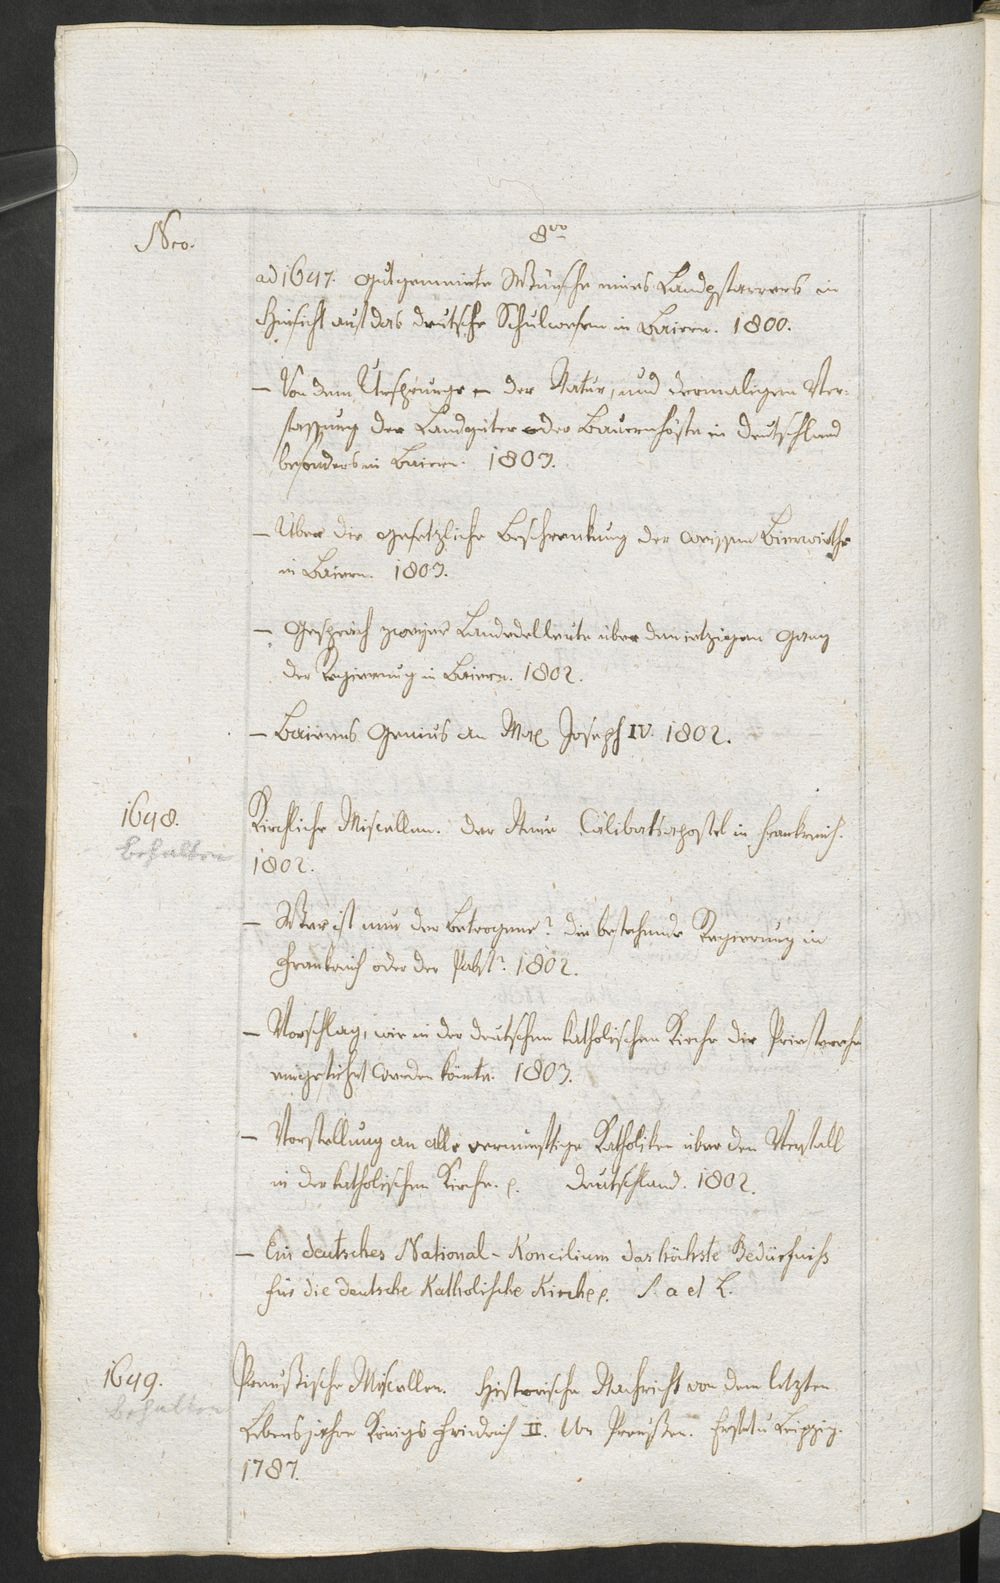 Nro.
8vo
ad 1647. Gutgemeinte Wünsche eines Landpfarrers in
Hinsicht auf das deutsche Schulwesen in Baiern. 1800.
– Von dem Ursprunge – der Natur, und dermaligen Ver-
fassung der Landgüter oder Bauernhöfe in Deutschland
besonders in Baiern. 1803.
– Über die gesetzliche Beschrenkung der weissen Bierwirthe
in Baiern. 1803.
– Gespräch zweyer Landedelleute über den ietzigen Gang
der Regierung in Baiern. 1802.
– Baierns Genius an Max Joseph IV. 1802.
1648.
behalten
Kirchliche Miscellen. Der Neue Cölibatsapostel in Frankreich.
1802.
– Wer ist nun der Betrogene? die bestehende Regierung in
Frankreich oder der Pabst? 1802.
– Vorschlag, wie in der deutschen katholischen Kirche die Priesterehe
eingeführt werden könnte. 1803.
– Vorstellung an alle vernünftige Katholiken über den Verfall
in der katholischen Kirche. p. Deutschland. 1802.
– Ein deutsches National-Koncilium das höchste Bedürfniß
für die deutsche Katholische Kirche p. S. a et L.
1649.
behalten
Preussische Miscellen. Historische Nachricht von dem letzten
Lebensjahre Königs Friedrich II. von Preußen. Leipzig.
1787.